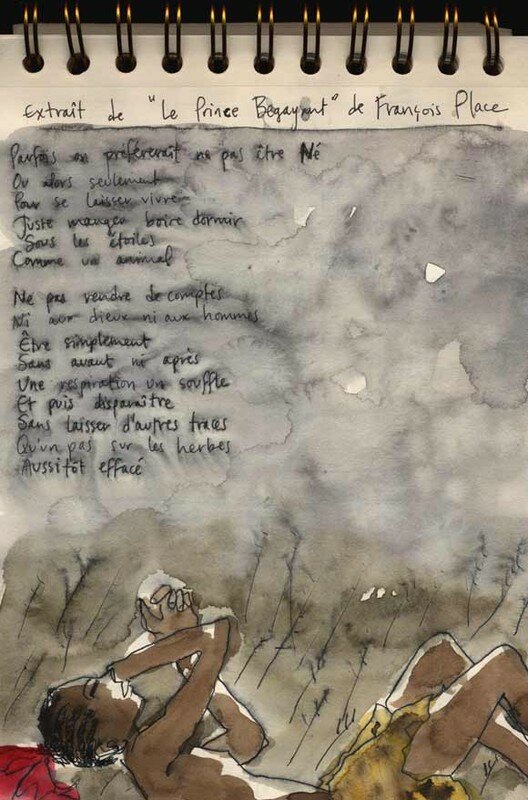 Extraît de "Le Prince Bégayant" de François Place
Parfois on préférerait ne pas être Né
Ou alors seulement
Pour se laisser vivre
Juste manger boire dormir
Sous les étoiles
Comme un animal
Ne pas rendre de comptes
Ni aux dieux ni aux hommes
Être simplement
Sans avant ni après
Une respiration un souffle
Et puis disparaître
Sans laisser d'autres traces
Qu'un pas sur les herbes
Aussitôt effacé